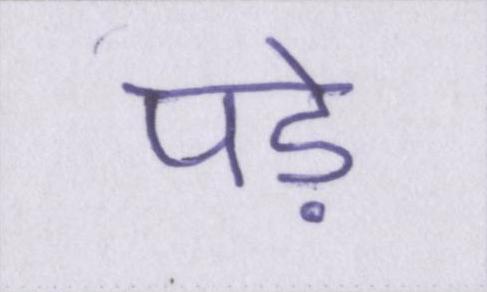 पड़े